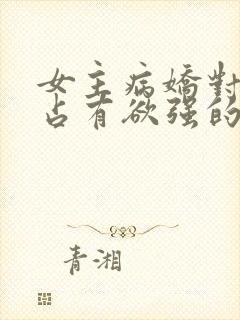 女主病嬌對
占有欲强的
青湘